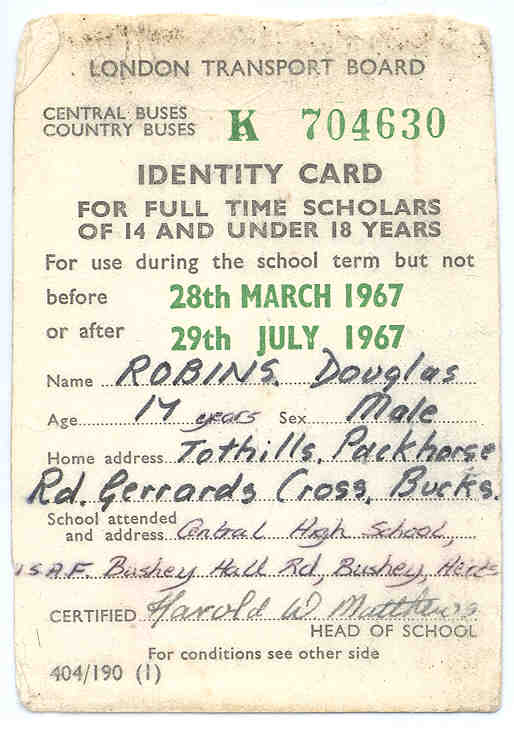 LONDON TRANSPORT BOARD
CENTRAL BUSES
COUNTRY BUSES
K 704630
IDENTITY CARD
FOR FULL TIME SCHOLARS
OF 14 AND UNDER 18 YEARS
For use during the school term but not
before 28th MARCH 1967
or after 29th JULY 1967
Name ROBINS. Douglas
Age 17 years Sex Male
Home address Tothills, Packhorse
Rd. Gerrards Cross, Bucks.
School attended
and address Central High School,
USAF. Bushey Hall Rd, Bushey, Herts
CERTIFIED Harold W Matthews
HEAD OF SCHOOL
For conditions see other side
404/190 (1)